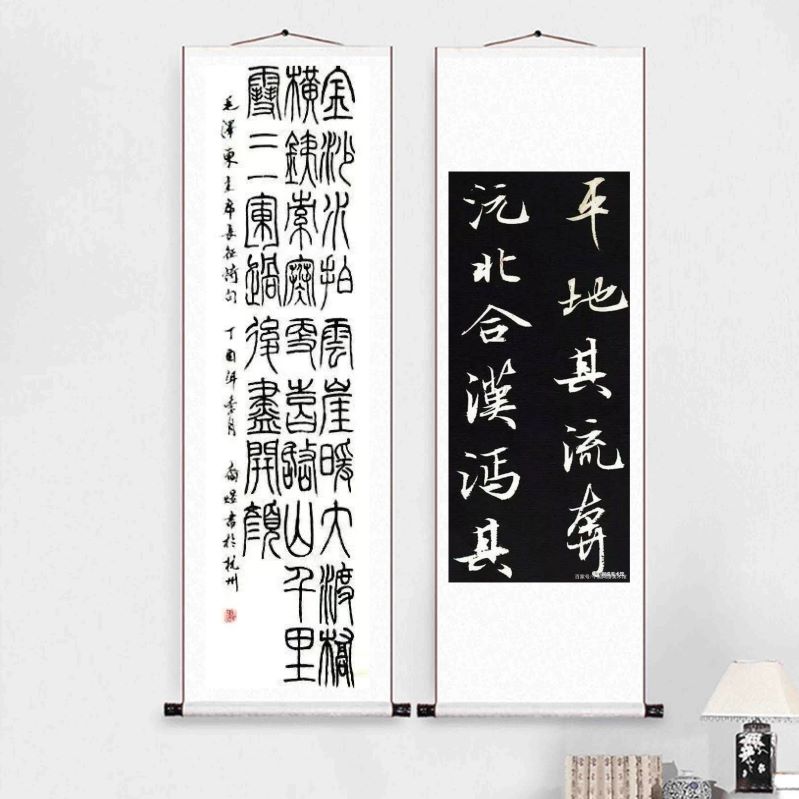 金沙水拍雲崖暖大渡橋
橫鐵索寒更喜岷山千里
雪三軍過後盡開顏
毛澤東主席長征詩句 丁酉年月 書於杭州
平地其流奔
沅北合漢沔其